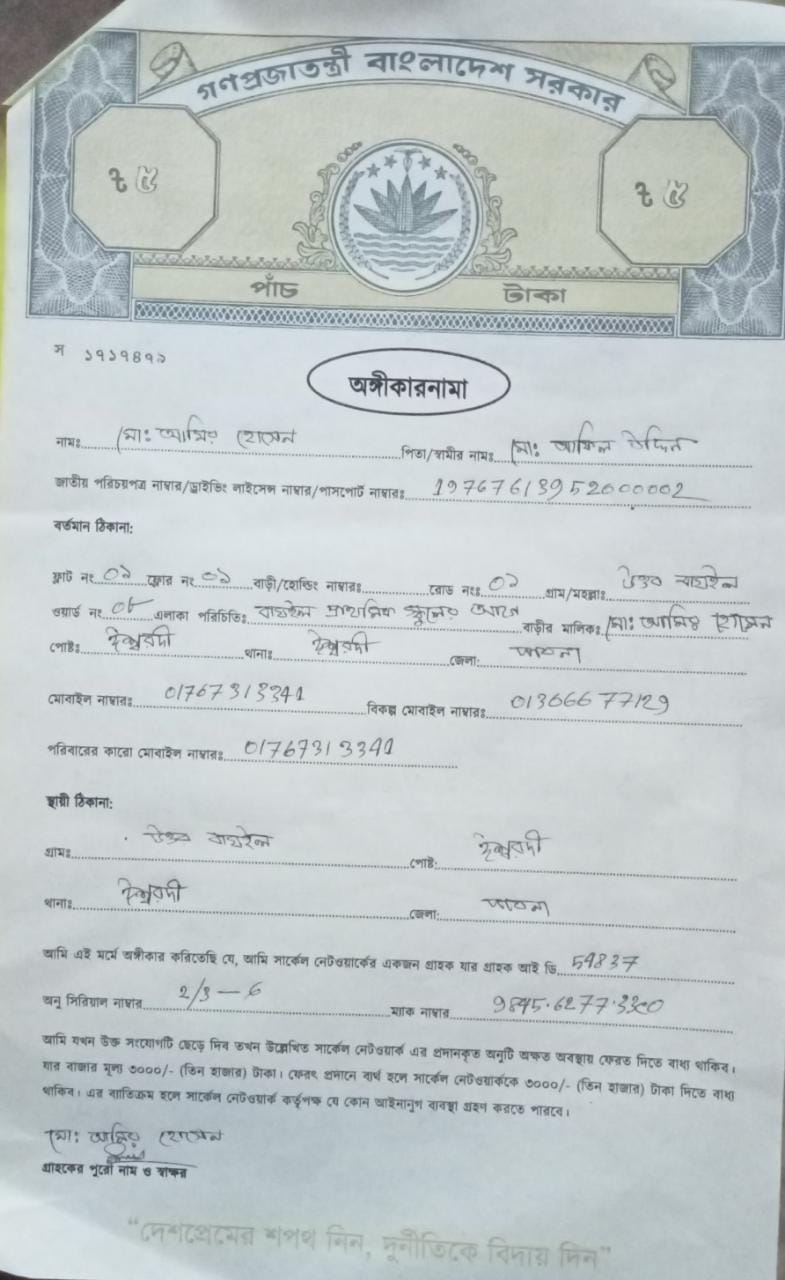 গণপ্রজাতন্ত্রী বাংলাদেশ সরকার
৳ ৫ ৳ ৫
পাঁচ টাকা
স ১৭১৭৪৭১
অঙ্গীকারনামা
নামঃ মোঃ আমির হোসেন পিতা/স্বামীর নামঃ মোঃ আফিল উদ্দিন
জাতীয় পরিচয়পত্র নাম্বার/ড্রাইভিং লাইসেন্স নাম্বার/পাসপোর্ট নাম্বারঃ 19767613952000002
বর্তমান ঠিকানা:
ফ্লাট নং ০১ ফ্লোর নং ০১ বাড়ী/হোল্ডিং নাম্বারঃ রোড নংঃ ০১ গ্রাম/মহল্লাঃ উত্তর বাঘইল
ওয়ার্ড নং ০৮ এলাকা পরিচিতিঃ বাঘইল প্রাথমিক স্কুলের আগে বাড়ীর মালিকঃ মোঃ আমির হোসেন
পোষ্টঃ ঈশ্বরদী থানাঃ ঈশ্বরদী জেলা: পাবনা
মোবাইল নাম্বারঃ 01767313341 বিকল্প মোবাইল নাম্বারঃ 01366677129
পরিবারের কারো মোবাইল নাম্বারঃ 01767313341
স্থায়ী ঠিকানা:
গ্রামঃ উত্তর বাঘইল পোষ্ট: ঈশ্বরদী
থানাঃ ঈশ্বরদী জেলা: পাবনা
আমি এই মর্মে অঙ্গীকার করিতেছি যে, আমি সার্কেল নেটওয়ার্কের একজন গ্রাহক যার গ্রাহক আই ডি 54837
অনু সিরিয়াল নাম্বার 2/3 — 6 ম্যাক নাম্বার 9845.6277.33C0
আমি যখন উক্ত সংযোগটি ছেড়ে দিব তখন উল্লেখিত সার্কেল নেটওয়ার্ক এর প্রদানকৃত অনুটি অক্ষত অবস্থায় ফেরত দিতে বাধ্য থাকিব।
যার বাজার মূল্য ৩০০০/- (তিন হাজার) টাকা। ফেরৎ প্রদানে ব্যর্থ হলে সার্কেল নেটওয়ার্ককে ৩০০০/- (তিন হাজার) টাকা দিতে বাধ্য
থাকিব। এর ব্যতিক্রম হলে সার্কেল নেটওয়ার্ক কর্তৃপক্ষ যে কোন আইনানুগ ব্যবস্থা গ্রহণ করতে পারবে।
মোঃ আমির হোসেন
গ্রাহকের পুরো নাম ও স্বাক্ষর
“দেশপ্রেমের শপথ নিন, দুর্নীতিকে বিদায় দিন”